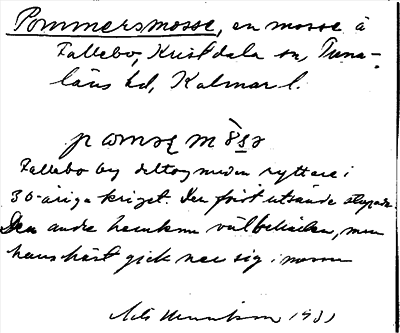 Pommersmosse, en mosse å
Fallebo, Kristdala sn, Tuna-
läns hd, Kalmar l.
Fallebo by deltog med en ryttare i
30-åriga kriget. Den först utsände stupade.
Den andre hemkom välbehållen, men
hans häst gick ner sig i mossen
1931